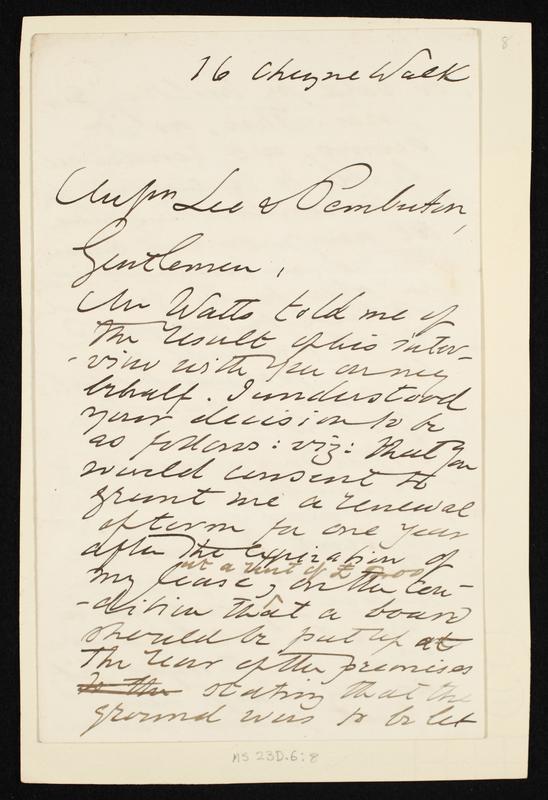 8
16 Cheyne Walk
Lee & Pemberton,
Gentlemen,
Mr Watts told me of
the result of his inter-
-view with you on my
behalf. I understood
your decision to be
as follows: viz: that you
would consent to
grant me a renewal
of term for one year
after the expiration of
at a rent of £
my lease, on the con-
-dition that a board
should be put up at
the rear of the premises
to the stating that the
ground was to be let
MS 23D.6:8